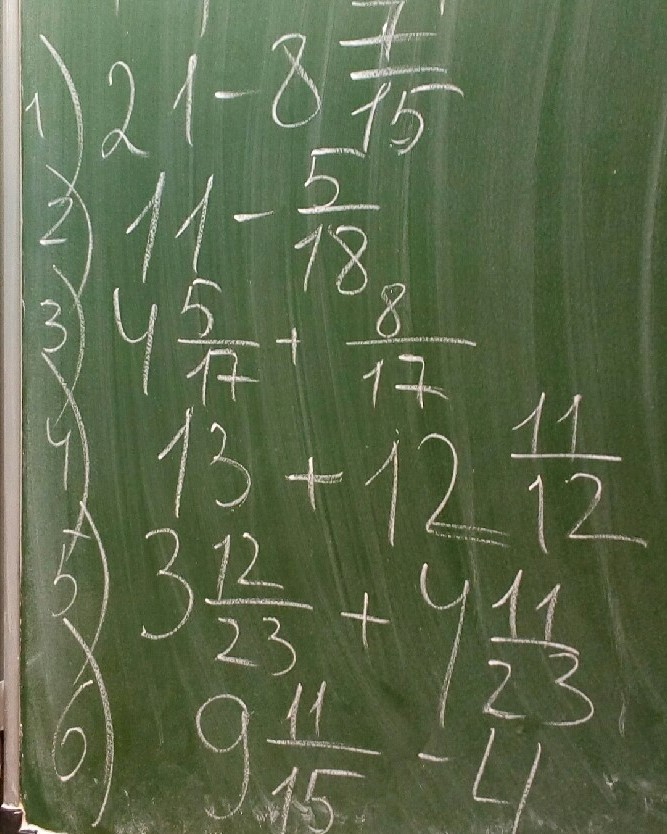 1) 21 - 8 7/15
2) 11 - 5/18
3) 4 5/17 + 8/17
4) 13 + 12 11/12
5) 3 12/23 + 4 11/23
6) 9 11/15 - 4